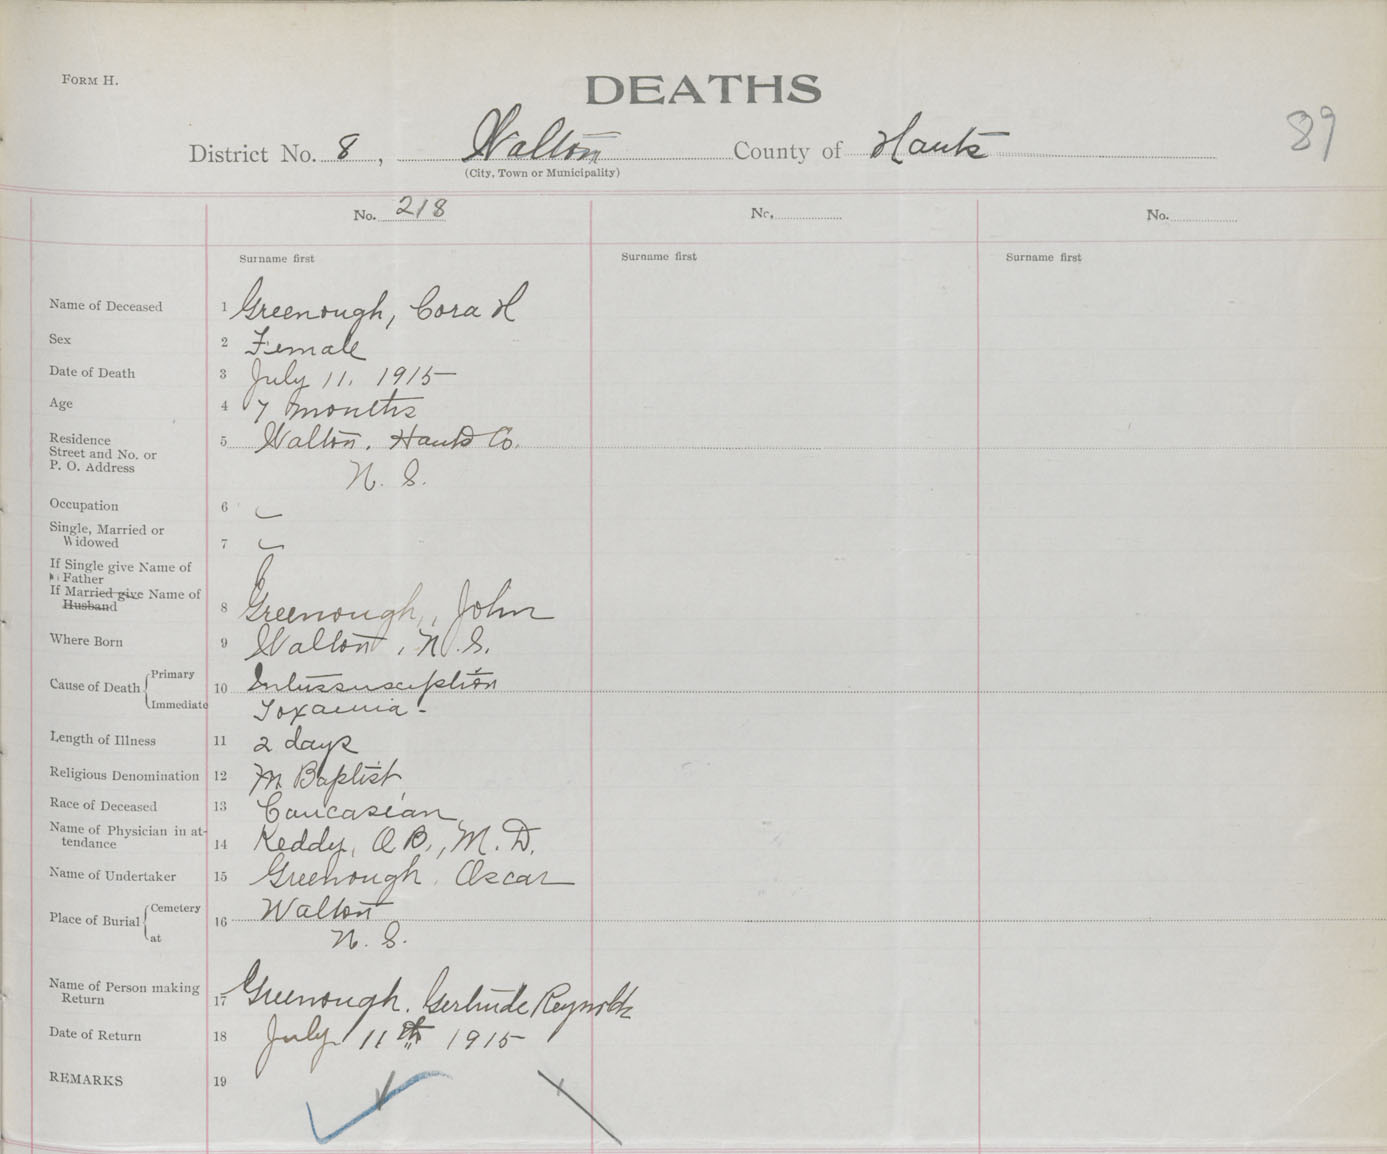 FORM H.
DEATHS
89
District No. 8, Walton County of Hants
(City, Town or Municipality)
No. 218 No. No.
Surname first Surname first Surname first
Name of Deceased 1 Greenough, Cora H
Sex 2 Female
Date of Death 3 July 11. 1915
Age 4 7 months
Residence
Street and No. or
P. O. Address 5 Walton. Hants Co.
N. S.
Occupation 6
Single, Married or
Widowed 7
If Single give Name of
Father
If Married give Name of
Husband 8 Greenough, John
Where Born 9 Walton, N.S.
Cause of Death Primary 10 Intussusception
Immediate Toxaemia -
Length of Illness 11 2 days
Religious Denomination 12 M Baptist
Race of Deceased 13 Caucasian
Name of Physician in at-
tendance 14 Keddy, O B., M. D.
Name of Undertaker 15 Greenough, Oscar
Place of Burial Cemetery 16 Walton
at N. S.
Name of Person making
Return 17 Greenough. Gertrude Reynolds
Date of Return 18 July 11th 1915
REMARKS 19